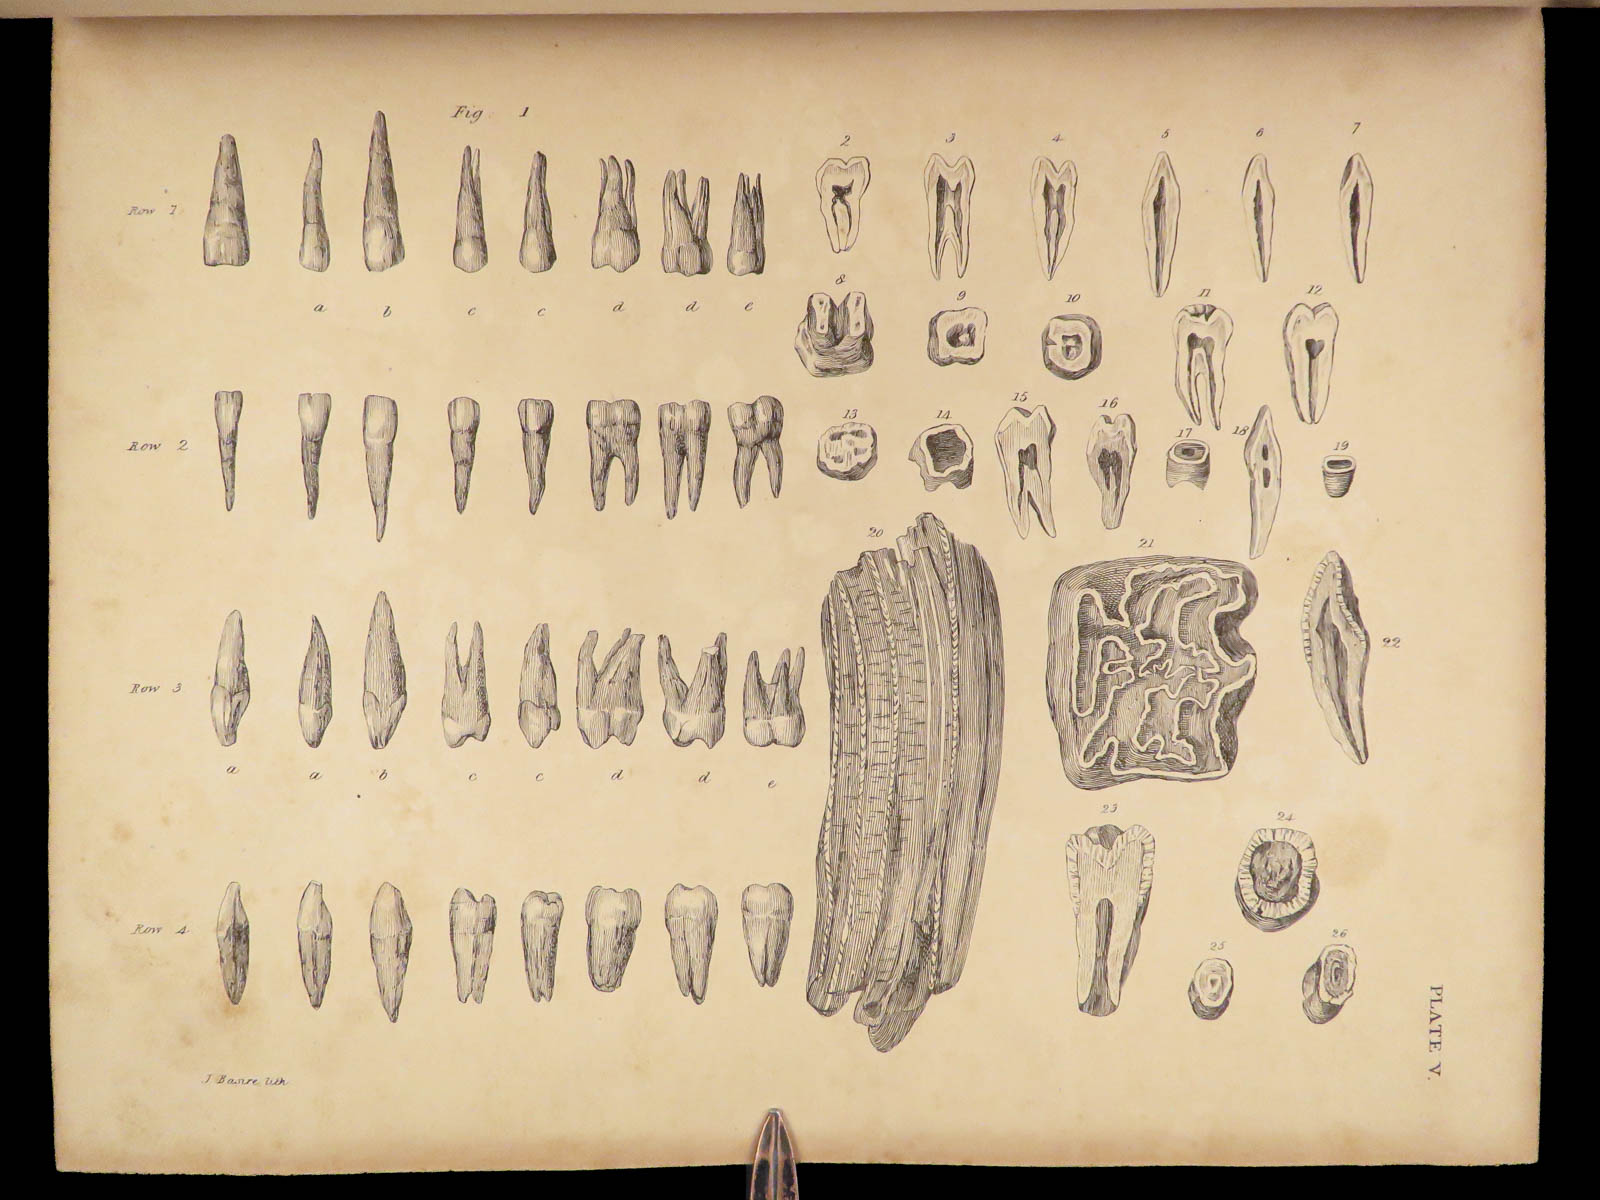 Fig. 1
Row 1
a b c c d d e
2 3 4 5 6 7
8 9 10 11 12
Row 2
13 14 15 16 17 18 19
20 21 22
Row 3
a a b c c d d e
23 24
25 26
Row 4
J. Basire lith
PLATE V.